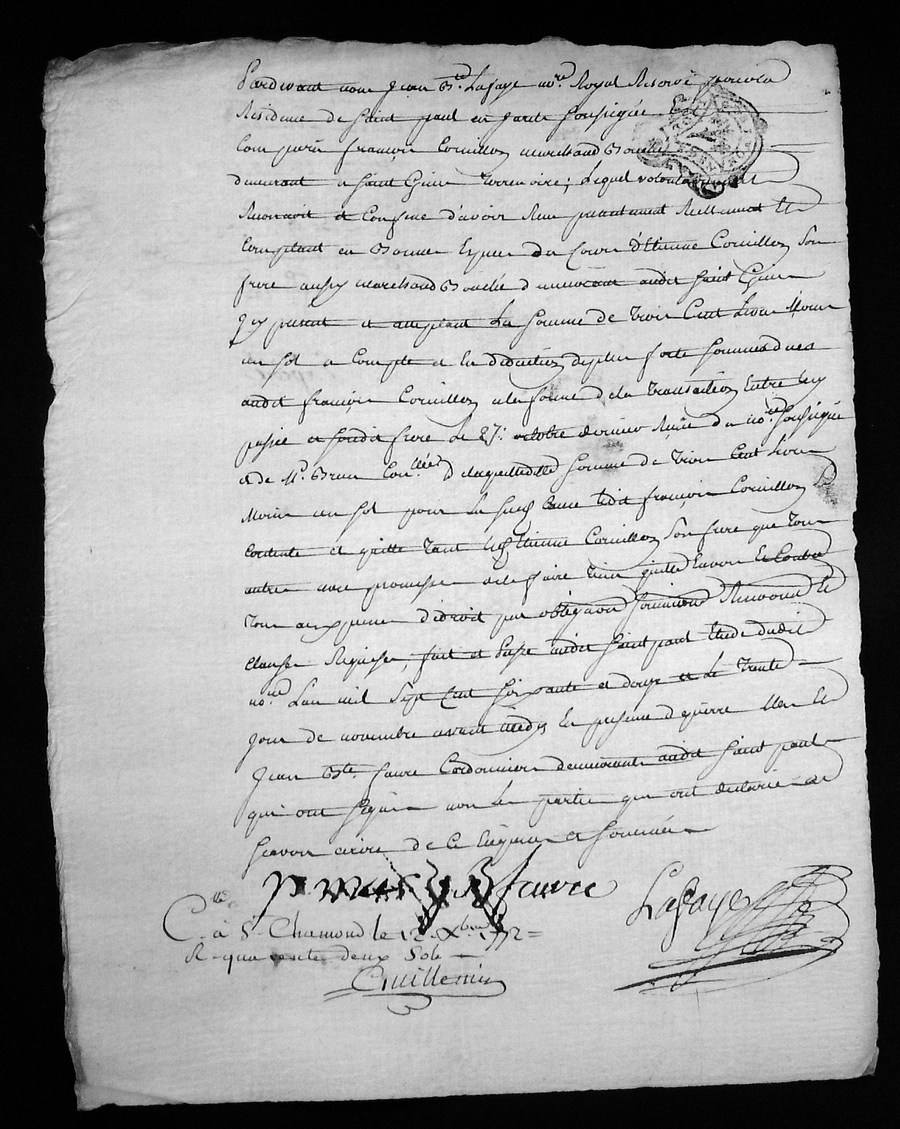 Pardevant nous Jean Bte. Lafaye nore. Royal Reservé pour la
Residence de Saint paul en Jarêts soussigné
Comparu françois Cornillon marchand
demeurant a Saint Genis terrenoire; Lequel volontairement
Reconnoit et Confesse d'avoir Recu presentement Reellement et
Comptant en Bonnes Especes du Cours d'Etienne Cornillon Son
frere aussy marchand demeurant audit Saint Genis
Icy present et acceptant La Somme de Trois Cent Livres Moins
un Sol a Compte et En deduction de plus forte Sommes dues
audit françois Cornillon a la forme de la Transaction Entre luy
passée et Sondit frere Le 27e. octobre dernier Reçue du nore. Soussigné
et de Me. Brun de laquelle dite Somme de Trois Cent Livres
Moins un Sol pour La Susd. Cause ledit françois Cornillon
Contente et quitte tant led. Etienne Cornillon Son frere que tous
autres avec promesse de les faire tenir quitte Envers Et Contre
tous aux peines de droit par obligaon. Soumissions Renvond. Et
Clauses Requises, fait et Passé audit Saint paul Etude dudit
nore. L'an mil Sept Cent Soixante et douze et Le Trente
Jour de novembre avant midy En presence de pierre Mer Et
Jean Bte. faure Cordonnier demeurants audit Saint paul
qui ont Signé non les parties qui ont declaré ne
Scavoir ecrire de Ce Enquis et Sommés
p mer B faure Lafaye
Cllé. à St. Chamond le 12 Xbre 1772 =
R. quarente deux Sols
Guillemin